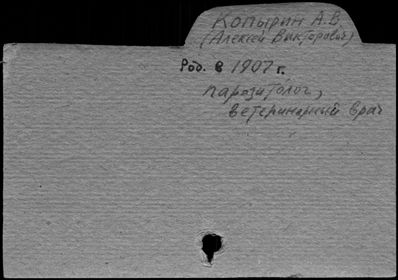 Копырин А.В.
(Алексей Викторович)
Род. в 1907 г.
паразитолог,
ветеринарный врач